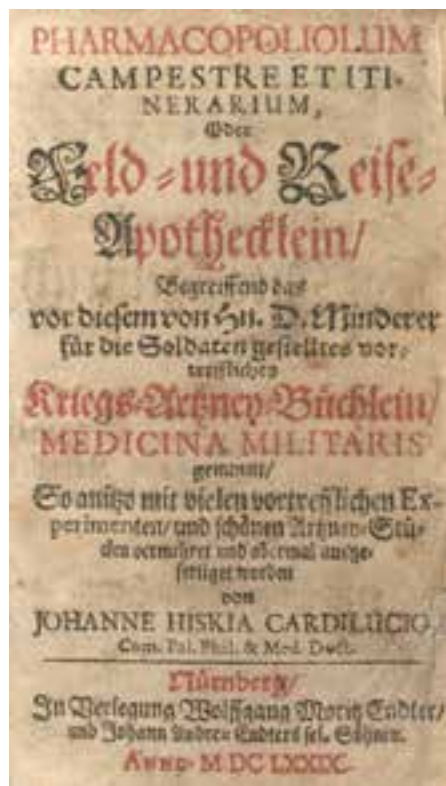 PHARMACOPOLIOLUM
CAMPESTRE ET ITI-
NERARIUM,
Oder
Feld-und Reise-
Apothecklein/
Begreiffend das
vor diesem von Hn. D. Minderer
für die Soldaten gestelltes vor-
trefflichen
Kriegs-Artzney-Büchlein/
MEDICINA MILITARIS
genannt/
So anitzo mit vielen vortrefflichen Ex-
perimenten/und schönen Artzney-Stü-
cken vermehret und abermal ausge-
fertiget worden
von
JOHANNE HISKIA CARDILUCIO,
Com. Pal. Phil. & Med. Doct.
Nürnberg/
In Verlegung Wolffgang Moritz Endter/
und Johann Andreæ Endters sel. Söhnen.
ANNO M DC LXXIX